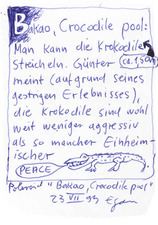 Bakao, Crocodile pool:
Man kann die Krokodile
streicheln. Günter (ca. 1,50m)
meint (aufgrund seines
gestrigen Erlebnisses),
die Krokodile sind wohl
weit weniger aggressiv
als so mancher Einheim-
ischer
PEACE
Polaroid "Bakao, Crocodile pool"
23 VII 99